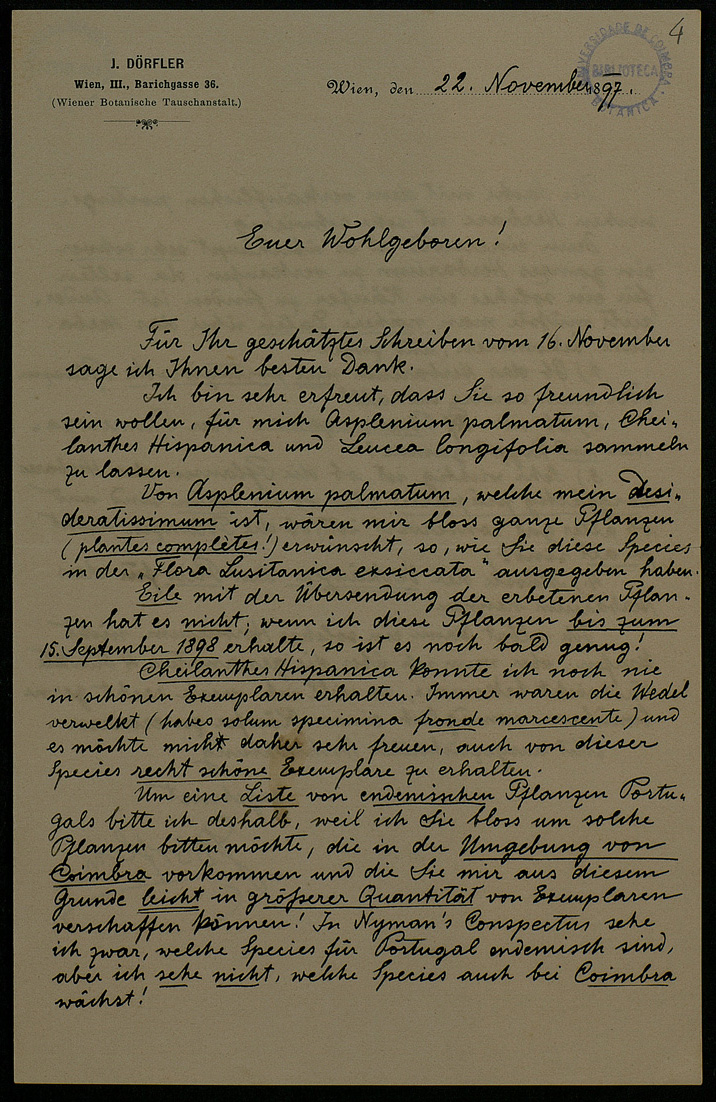 4
J. DÖRFLER
Wien, III., Barichgasse 36.
(Wiener Botanische Tauschanstalt.)
Wien, den 22. November 1897.
UNIVERSIDADE DE COIMBRA
BIBLIOTECA
BOTANICA
Euer Wohlgeboren!
Für Ihr geschätztes Schreiben vom 16. November
sage ich Ihnen besten Dank.
Ich bin sehr erfreut, dass Sie so freundlich
sein wollen, für mich Asplenium palmatum, Chei-
lanthes Hispanica und Leucea longifolia sammeln
zu lassen.
Von Asplenium palmatum, welche mein Desi-
deratissimum ist, wären mir bloss ganze Pflanzen
(plantes complètes!) erwünscht, so, wie Sie diese Species
in der „Flora Lusitanica exsiccata" ausgegeben haben.
Eile mit der Übersendung der erbetenen Pflan-
zen hat es nicht; wenn ich diese Pflanzen bis zum
15. September 1898 erhalte, so ist es noch bald genug!
Cheilanthes Hispanica konnte ich noch nie
in schönen Exemplaren erhalten. Immer waren die Wedel
verwelkt (habeo solum specimina fronde marcescente) und
es möchte mich daher sehr freuen, auch von dieser
Species recht schöne Exemplare zu erhalten.
Um eine Liste von endemischen Pflanzen Portu-
gals bitte ich deshalb, weil ich Sie bloss um solche
Pflanzen bitten möchte, die in der Umgebung von
Coimbra vorkommen und die Sie mir aus diesem
Grunde leicht in größerer Quantität von Exemplaren
verschaffen können! In Nyman's Conspectus sehe
ich zwar, welche Species für Portugal endemisch sind,
aber ich sehe nicht, welche Species auch bei Coimbra
wächst!